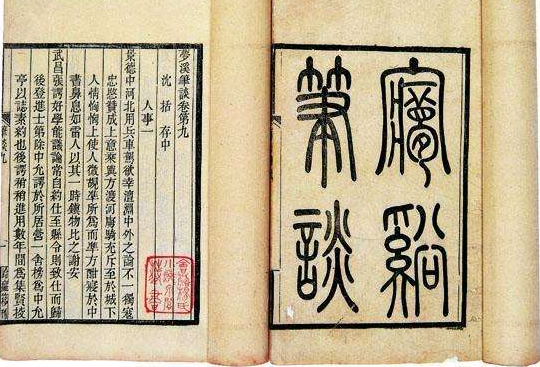 夢谿
筆談
夢溪筆談卷第九
沈括存中
人事一
景德中河北用兵車駕欲幸澶淵中外之論不一獨寇
忠愍贊成上意乘輿方渡河虜騎充斥至於城下
人情恟恟上使人微覘準所爲而準方酣寢於中
書鼻息如雷人以其一時鎮物比之謝安
武昌張諤好學能議論常自約仕至縣令則致仕而歸
後登進士第除中允諤於所居營一舍榜爲中允
亭以誌素約也後諤稍稍進用數年間爲集賢校